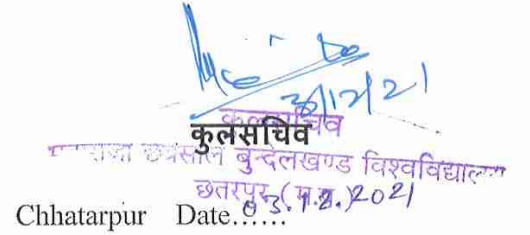 3/12/21
कुलसचिव
कुलसचिव
महाराजा छत्रसाल बुन्देलखण्ड विश्वविद्यालय
छतरपुर (म.प्र.)
Chhatarpur Date...... 03.12.2021